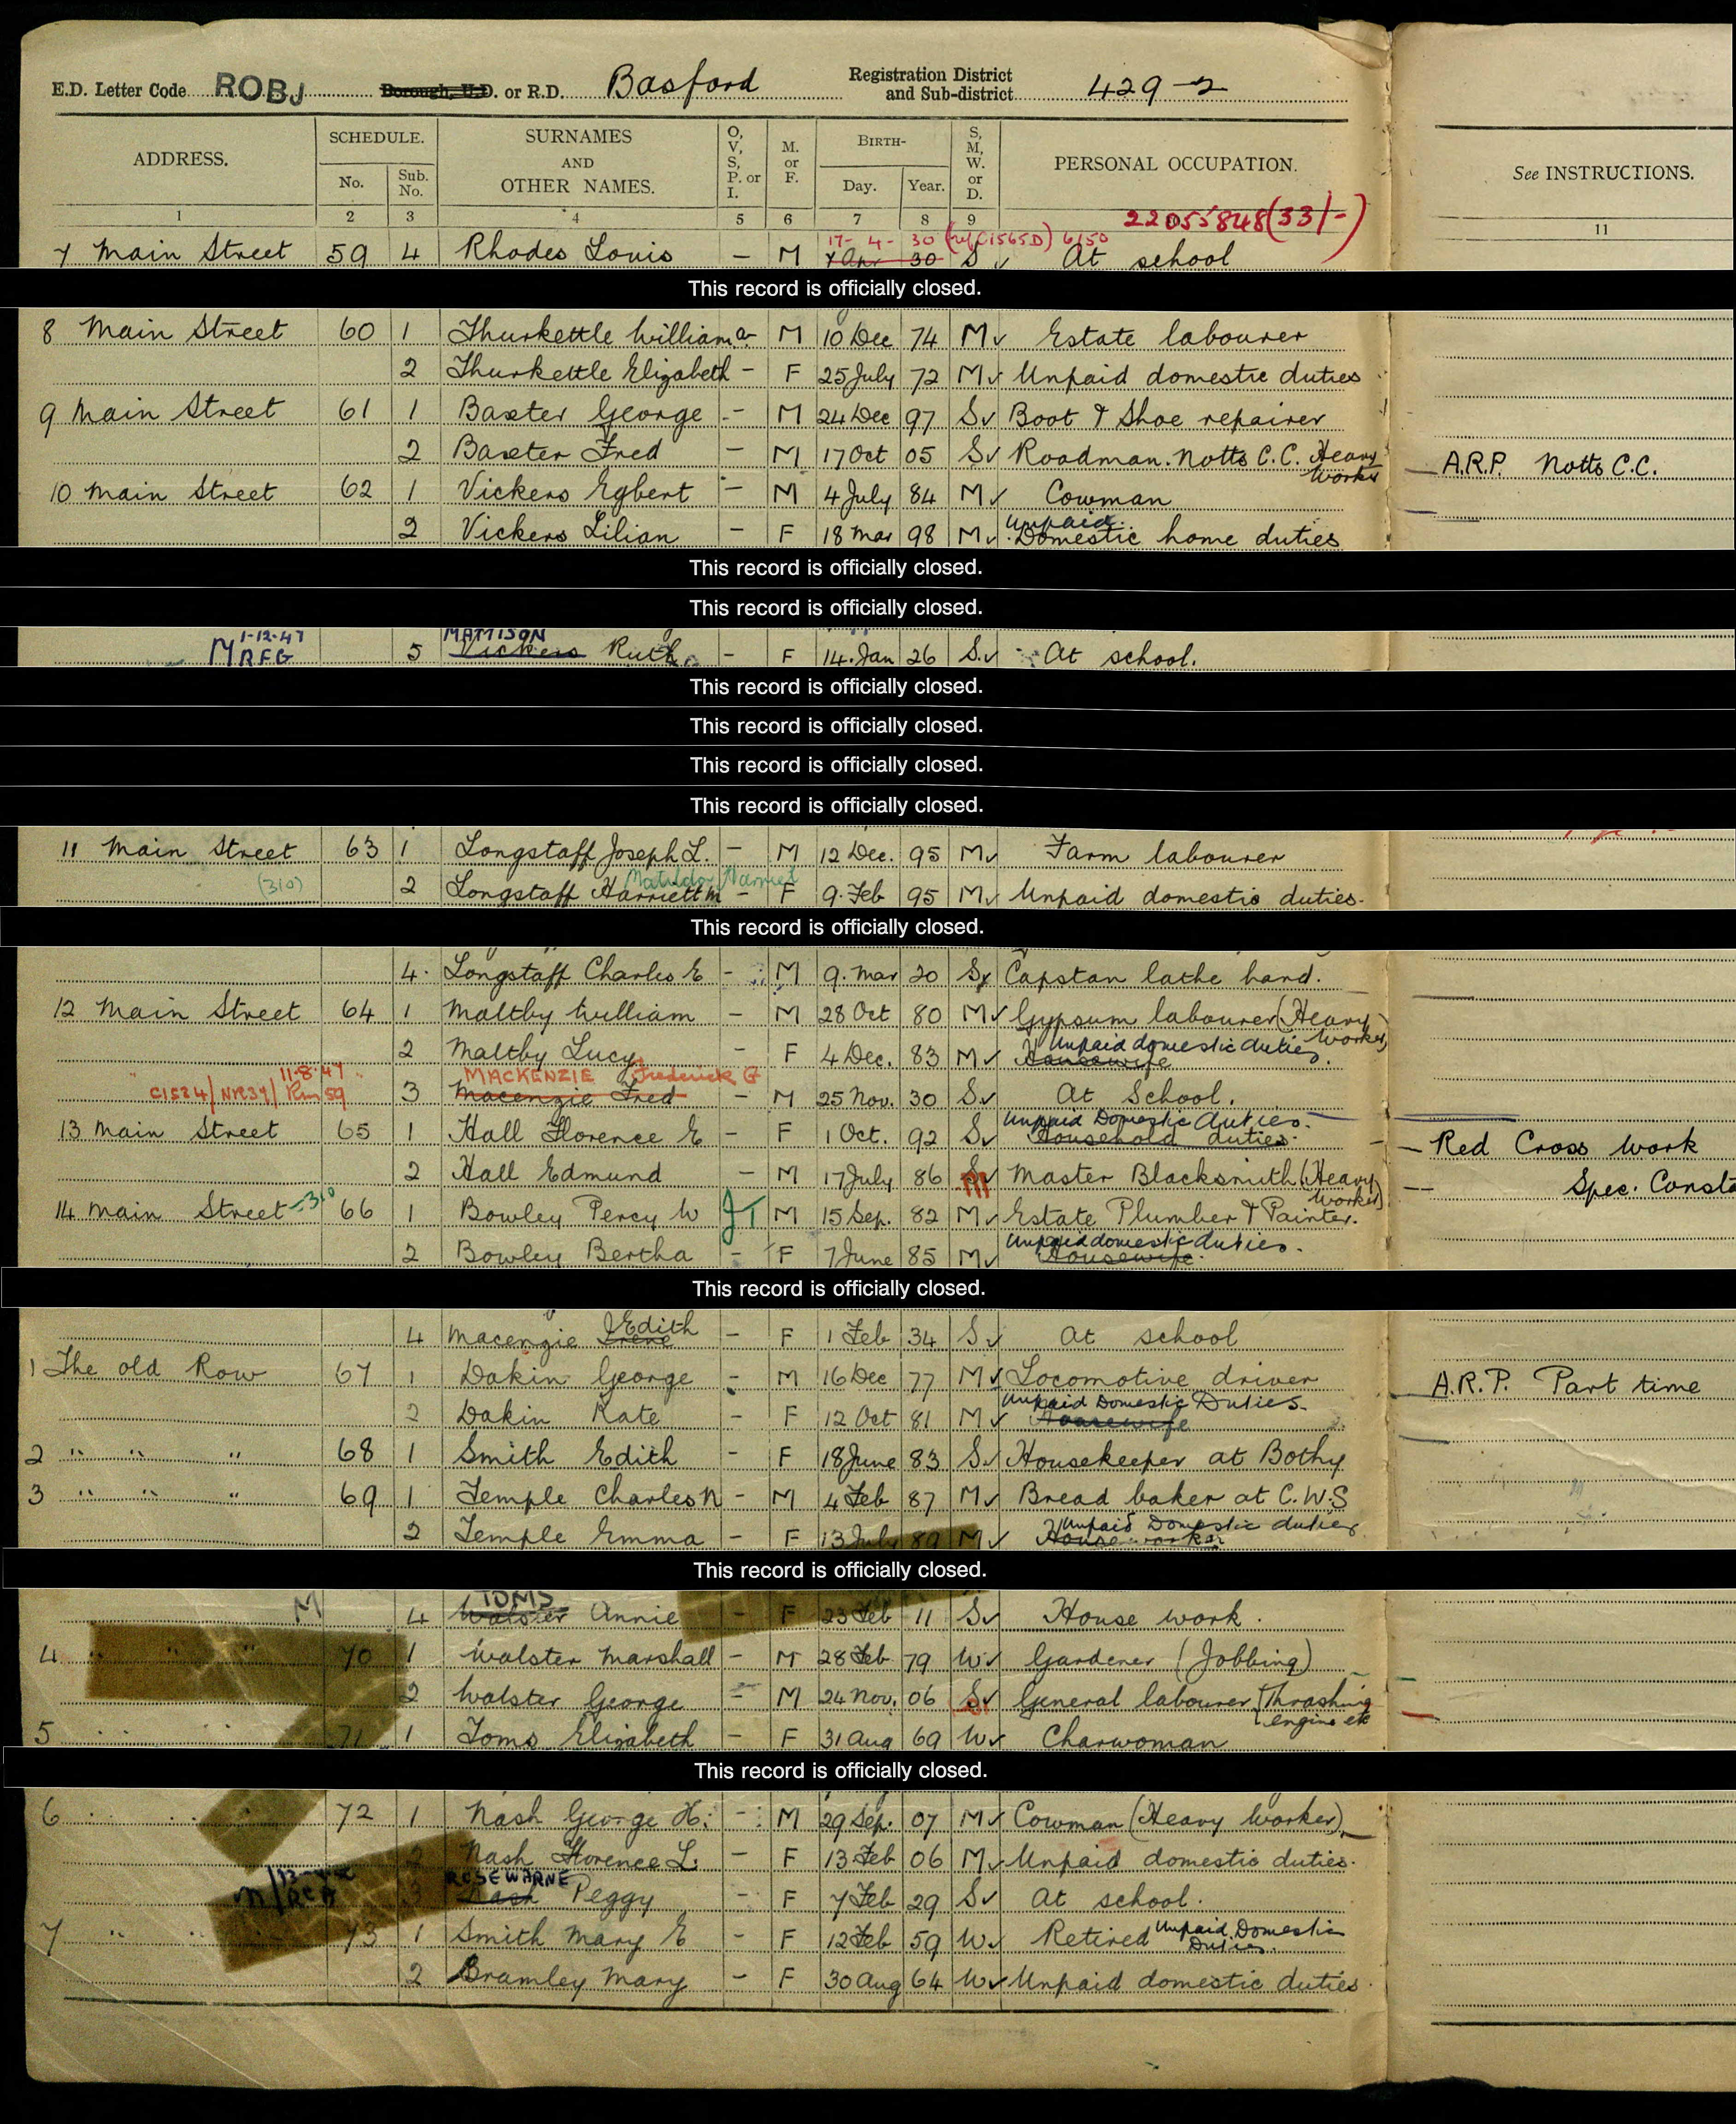 E.D. Letter Code ROBJ Borough, U.D. or R.D. Basford Registration District and Sub-district 429-2
ADDRESS. SCHEDULE. No. Sub. No. SURNAMES AND OTHER NAMES. O, V, S, P. or I. M. or F. BIRTH- Day. Year. S, M, W. or D. PERSONAL OCCUPATION. See INSTRUCTIONS.
1 2 3 4 5 6 7 8 9 22055848 (33/-) 11
17- 4- 30 6/50
7 Main Street 59 4 Rhodes Louis - M 7 Apr 30 S At school
This record is officially closed.
8 Main Street 60 1 Thurkettle William a - M 10 Dec 74 M Estate labourer
2 Thurkettle Elizabeth - F 25 July 72 M Unpaid domestic duties
9 Main Street 61 1 Baxter George - M 24 Dec 97 S Boot & Shoe repairer
2 Baxter Fred - M 17 Oct 05 S Roadman. Notts C.C. Heavy Works A.R.P. Notts C.C.
10 Main Street 62 1 Vickers Egbert - M 4 July 84 M Cowman
2 Vickers Lilian - F 18 Mar 98 M Unpaid Domestic home duties
This record is officially closed.
This record is officially closed.
1-12-47 MATTISON
M RFG 5 Vickers Ruth - F 14. Jan 26 S At school.
This record is officially closed.
This record is officially closed.
This record is officially closed.
This record is officially closed.
11 Main Street 63 1 Longstaff Joseph L. - M 12 Dec. 95 M Farm labourer
Matilda Harriet
(310) 2 Longstaff Harriett M - F 9. Feb 95 M Unpaid domestic duties
This record is officially closed.
4. Longstaff Charles E - M 9. Mar 20 S Capstan lathe hand.
12 Main Street 64 1 Maltby William - M 28 Oct 80 M Gypsum labourer (Heavy Worker)
2 Maltby Lucy - F 4 Dec. 83 M Unpaid domestic duties. Housewife
11-8-47 MACKENZIE Frederick G
3 Macenzie Fred - M 25 Nov. 30 S At School.
13 Main Street 65 1 Hall Florence E - F 1 Oct. 92 S Unpaid Domestic duties. Household duties. Red Cross Work
2 Hall Edmund - M 17 July 86 S Master Blacksmith (Heavy Worker) Spec. Consta
14 Main Street - 310 66 1 Bowley Percy W JT M 15 Sep. 82 M Estate Plumber & Painter.
2 Bowley Bertha - F 7 June 85 M Unpaid domestic duties. Housewife
This record is officially closed.
4 Macenzie Irene Edith - F 1 Feb 34 S At school
1 The old Row 67 1 Dakin George - M 16 Dec 77 M Locomotive driver A.R.P. Part time
2 Dakin Kate - F 12 Oct 81 M Unpaid Domestic Duties. Housewife
2 " " " 68 1 Smith Edith - F 18 June 83 S Housekeeper at Bothy
3 " " " 69 1 Temple Charles N - M 4 Feb 87 M Bread baker at C.W.S
2 Temple Emma - F 13 July 89 M Unpaid Domestic duties
This record is officially closed.
TOMS
M 4 Walster Annie - F 23 Feb 11 S House work.
4 " " 70 1 Walster Marshall - M 28 Feb 79 W Gardener (Jobbing)
2 Walster George - M 24 Nov. 06 S General labourer (Thrashing engine etc
5 71 1 Toms Elizabeth - F 31 Aug 69 W Charwoman
This record is officially closed.
6 72 1 Nash George H. - M 29 Sep. 07 M Cowman (Heavy Worker)
2 Nash Florence L. - F 13 Feb 06 M Unpaid domestic duties.
ROSEWARNE
3 Nash Peggy - F 7 Feb 29 S At school.
7 " 73 1 Smith Mary E - F 12 Feb 59 W Retired Unpaid Domestic Duties.
2 Bramley Mary - F 30 Aug 64 W Unpaid domestic duties.